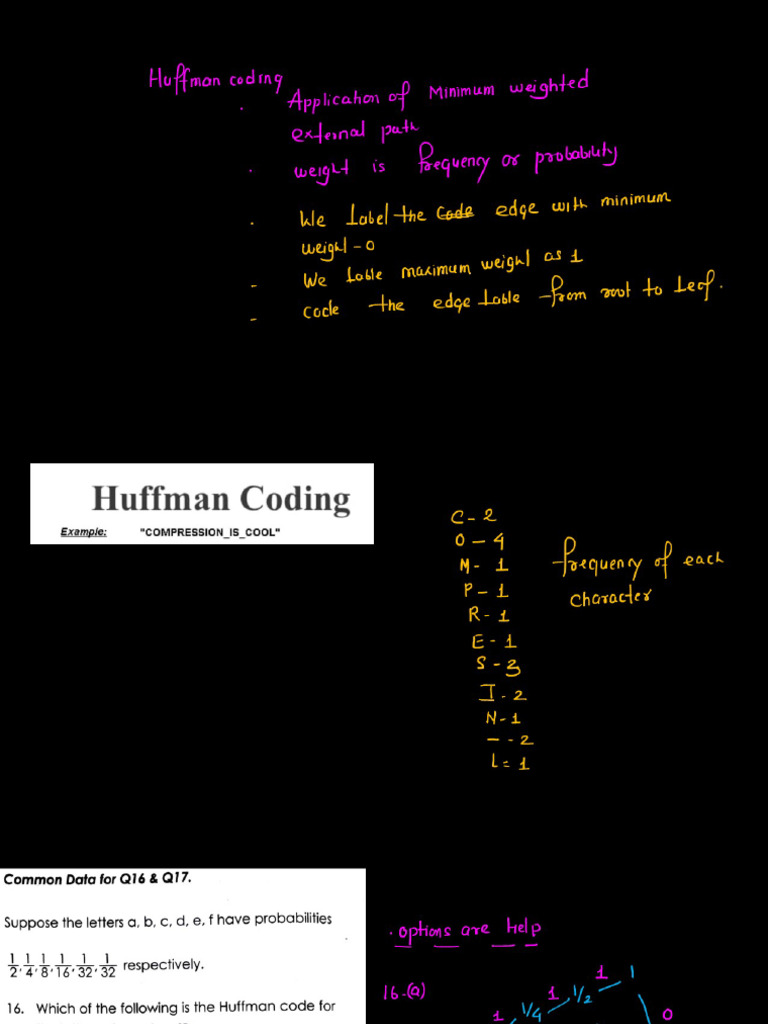 Huffman coding
. Application of Minimum weighted
external path
. weight is frequency or probability
. We Label the Code edge with minimum
weight - 0
- We lable maximum weight as 1
- code the edge lable from root to Leaf.
Huffman Coding
Example: "COMPRESSION_IS_COOL"
C - 2
O - 4
M - 1
P - 1
R - 1
E - 1
S - 3
I - 2
N - 1
_ - 2
L = 1
frequency of each
character
Common Data for Q16 & Q17.
Suppose the letters a, b, c, d, e, f have probabilities
1/2, 1/4, 1/8, 1/16, 1/32, 1/32 respectively.
16. Which of the following is the Huffman code for
. options are help
16.(a)
1 1
1 1/2
1 1/4 0